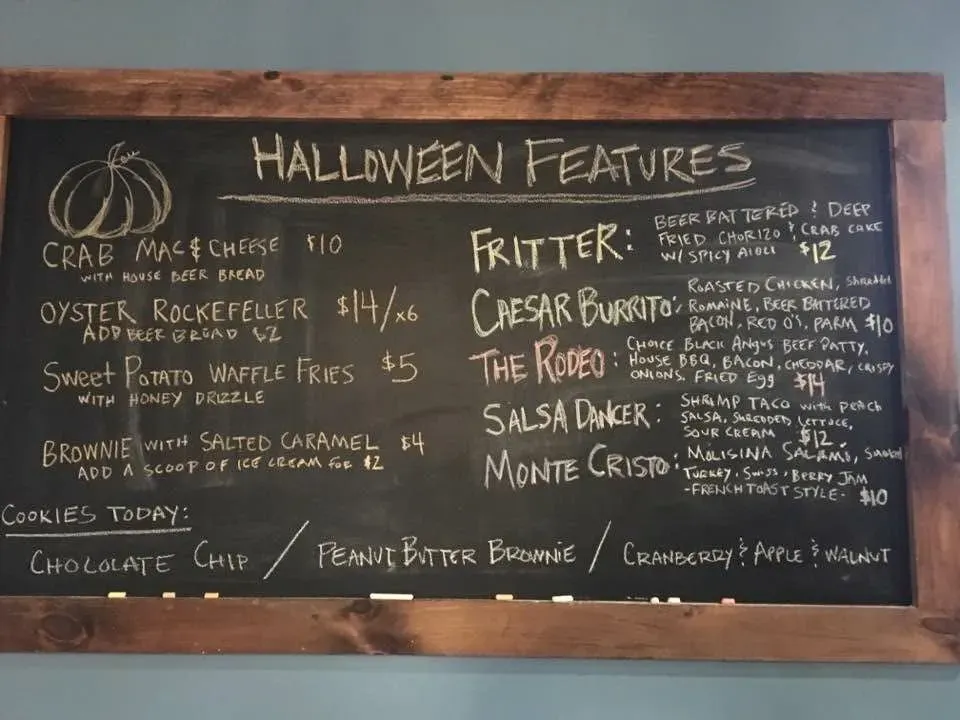 HALLOWEEN FEATURES
CRAB MAC & CHEESE $10
WITH HOUSE BEER BREAD
OYSTER ROCKEFELLER $14/x6
ADD BEER BREAD $2
SWEET POTATO WAFFLE FRIES $5
WITH HONEY DRIZZLE
BROWNIE WITH SALTED CARAMEL $4
ADD A SCOOP OF ICE CREAM FOR $2
FRITTER: BEER BATTERED & DEEP
FRIED CHORIZO & CRAB CAKE
W/ SPICY AIOLI $12
CAESAR BURRITO: ROASTED CHICKEN, Shredded
ROMAINE, BEER BATTERED
BACON, RED O'S, PARM $10
THE RODEO: CHOICE BLACK ANGUS BEEF PATTY,
HOUSE BBQ, BACON, CHEDDAR, CRISPY
ONIONS, FRIED Egg $14
SALSA DANCER: SHRIMP TACO with PEACH
SALSA, SHREDDED LETTUCE,
SOUR CREAM $12
MONTE CRISTO: MOLISINA SALAMI, Smoked
TURKEY, SWISS, BERRY JAM
-FRENCH TOAST STYLE- $10
COOKIES TODAY:
CHOLOLATE CHIP / PEANUT BUTTER BROWNIE / CRANBERRY & APPLE & WALNUT